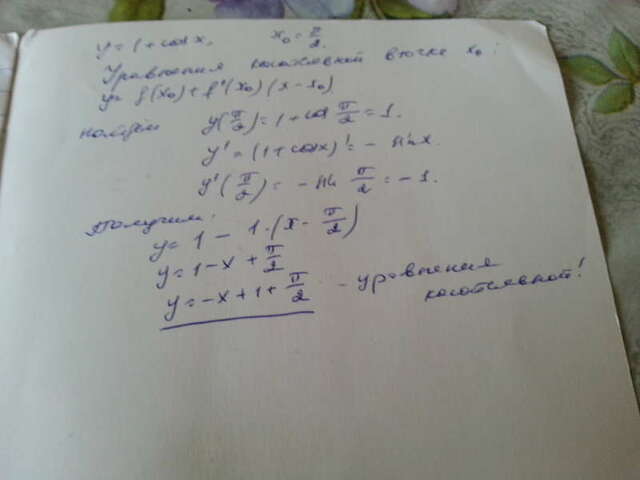 y = 1 + cos x, x₀ = π/2.
Уравнения касательной в точке x₀:
y = f(x₀) + f'(x₀)(x - x₀)
найдём y(π/2) = 1 + cos π/2 = 1.
y' = (1 + cos x)' = - sin x.
y'(π/2) = - sin π/2 = - 1.
Получим:
y = 1 - 1·(x - π/2)
y = 1 - x + π/2
y = -x + 1 + π/2 - уравнения
касательной!